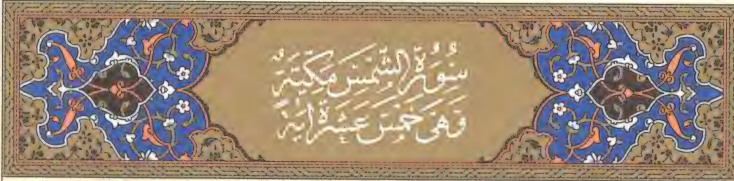 سُورَةُ الشَّمْسِ مَكِّيَّةٌ
وَهِيَ خَمْسَ عَشَرَةَ اٰيَةً